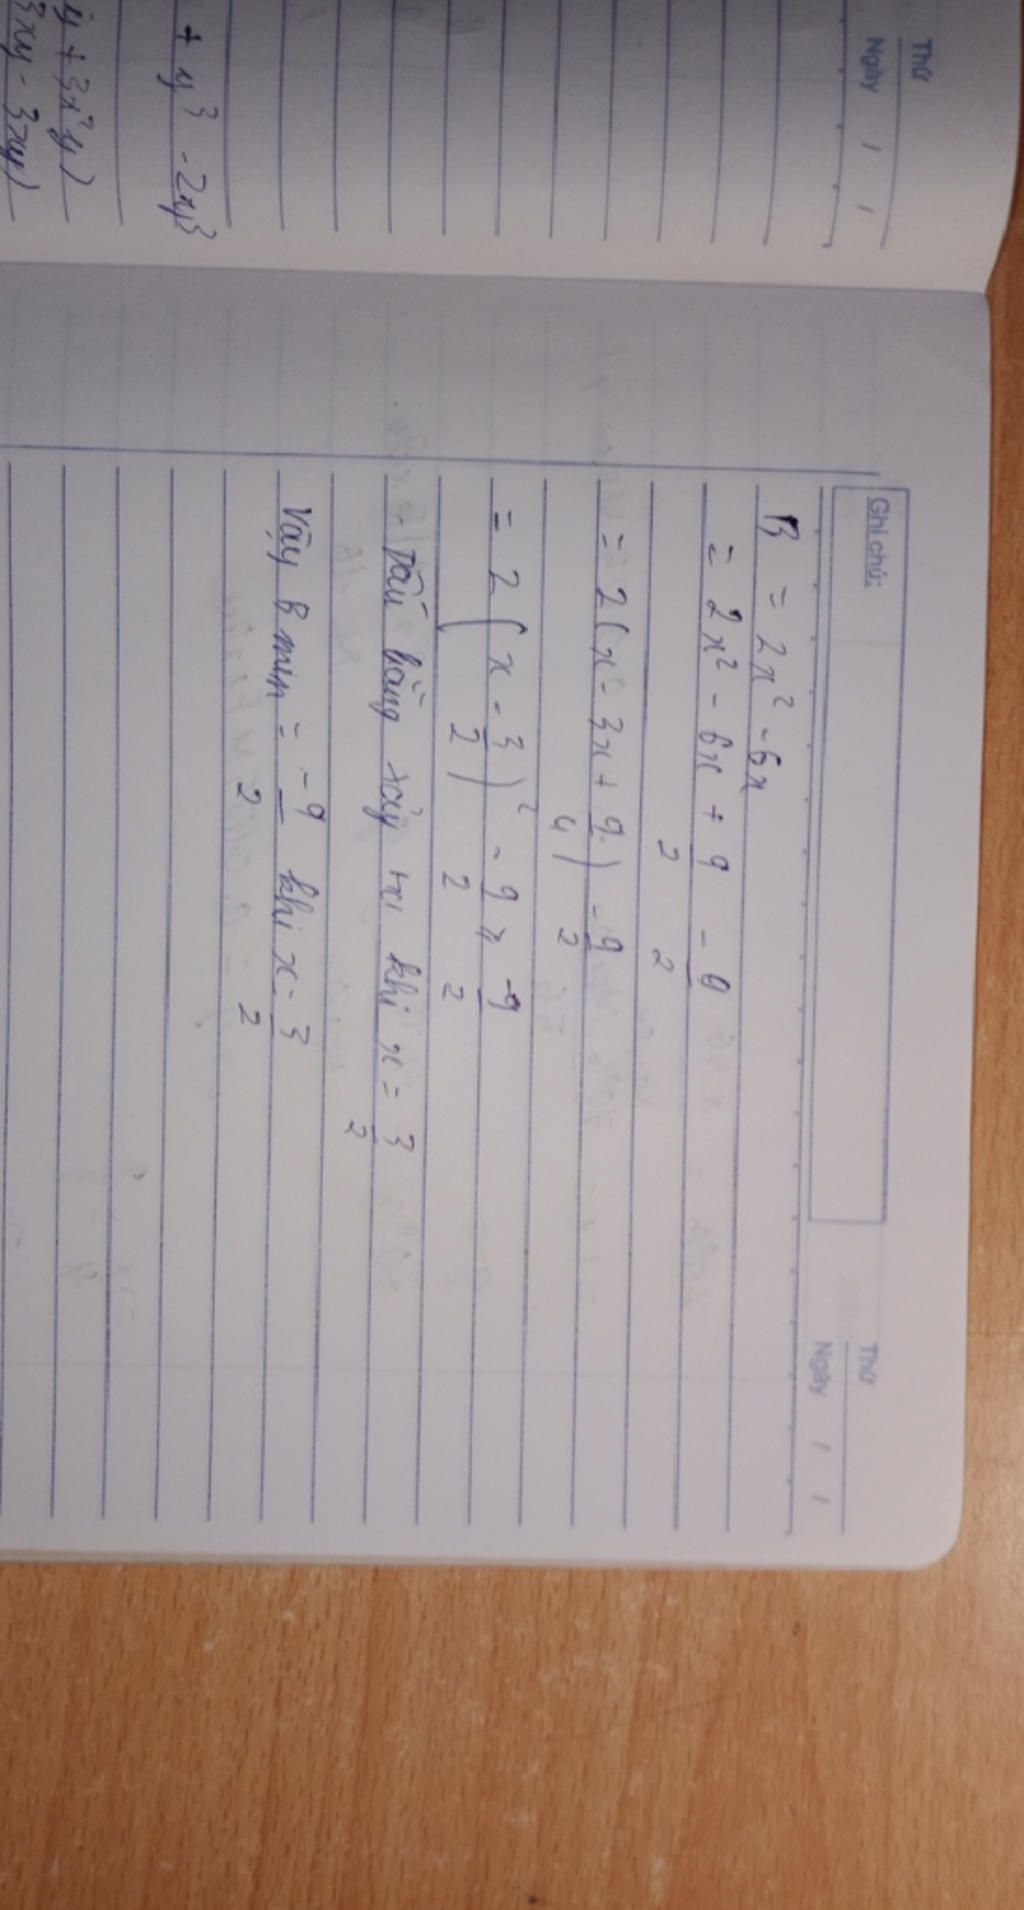 Thứ
Ngày / /
+ y³ - 2xy³
y + 3x²y)
3xy - 3xy)
Ghi chú:
Thứ
Ngày / /
B = 2x² - 6x
= 2x² - 6x + 9/2 - 9/2
= 2(x - 3x + 9/4) - 9/2
= 2(x - 3/2)² - 9/2 ≥ -9/2
Dấu bằng xảy ra khi x = 3/2
Vậy B min = -9/2 khi x = 3/2